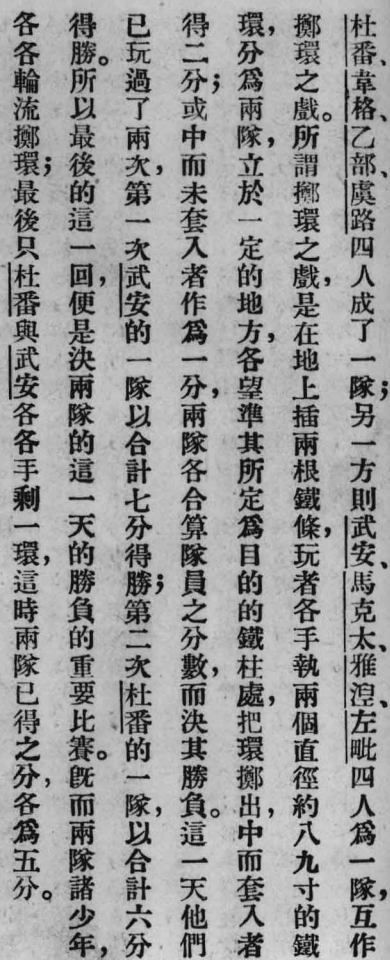 杜番、韋格、乙部、虞路四人成了一隊；另一方則武安、馬克太、雅涅、左毗四人爲一隊，互作
擲環之戲。所謂擲環之戲，是在地上插兩根鐵條，玩者各手執兩個直徑約八九寸的鐵
環，分爲兩隊，立於一定的地方，各望準其所定爲目的的鐵柱處，把環擲出，中而套入者
得二分；或中而未套入者作爲一分，兩隊各合算隊員之分數，而決其勝負。這一天他們
已玩過了兩次，第一次武安的一隊以合計七分得勝；第二次杜番的一隊，以合計六分
得勝。所以最後的這一回，便是決兩隊的這一天的勝負的重要比賽。既而兩隊諸少年，
各各輪流擲環；最後只杜番與武安各各手剩一環，這時兩隊已得之分，各爲五分。